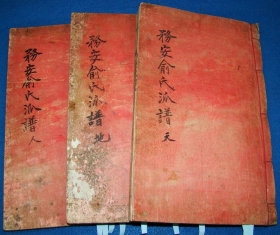 務安俞氏派譜天
務安俞氏派譜地
務安俞氏派譜人